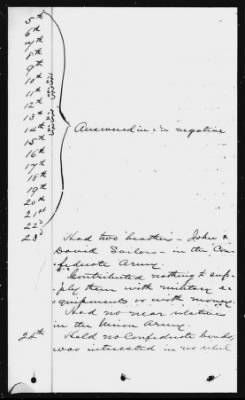 5th
6th
7th
8th
9th
10th
11th
12th
13th
14th
15th
16th
17th
18th
19th
20th
21st
22d
23d
Answered in the negative
Had two brothers - John &
David - in the Con-
federate Army.
Contributed nothing to sup-
ply them with military 
equipments or with money.
Had no near relatives
in the Union Army.
24th Held no Confederate bonds,
was interested in no